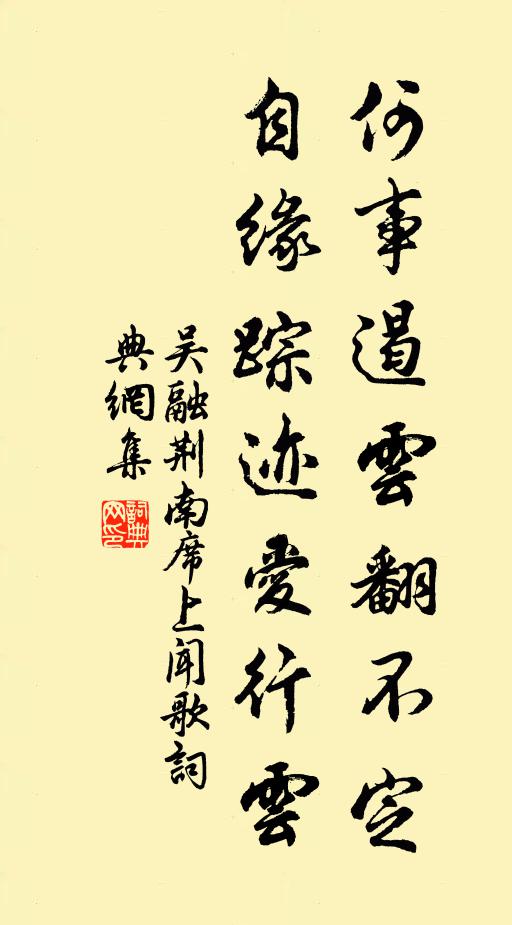 何事遏雲翻不定
自缘踪迹愛行雲
吴融荆南席上闻歌詞
典網集
詞典网印